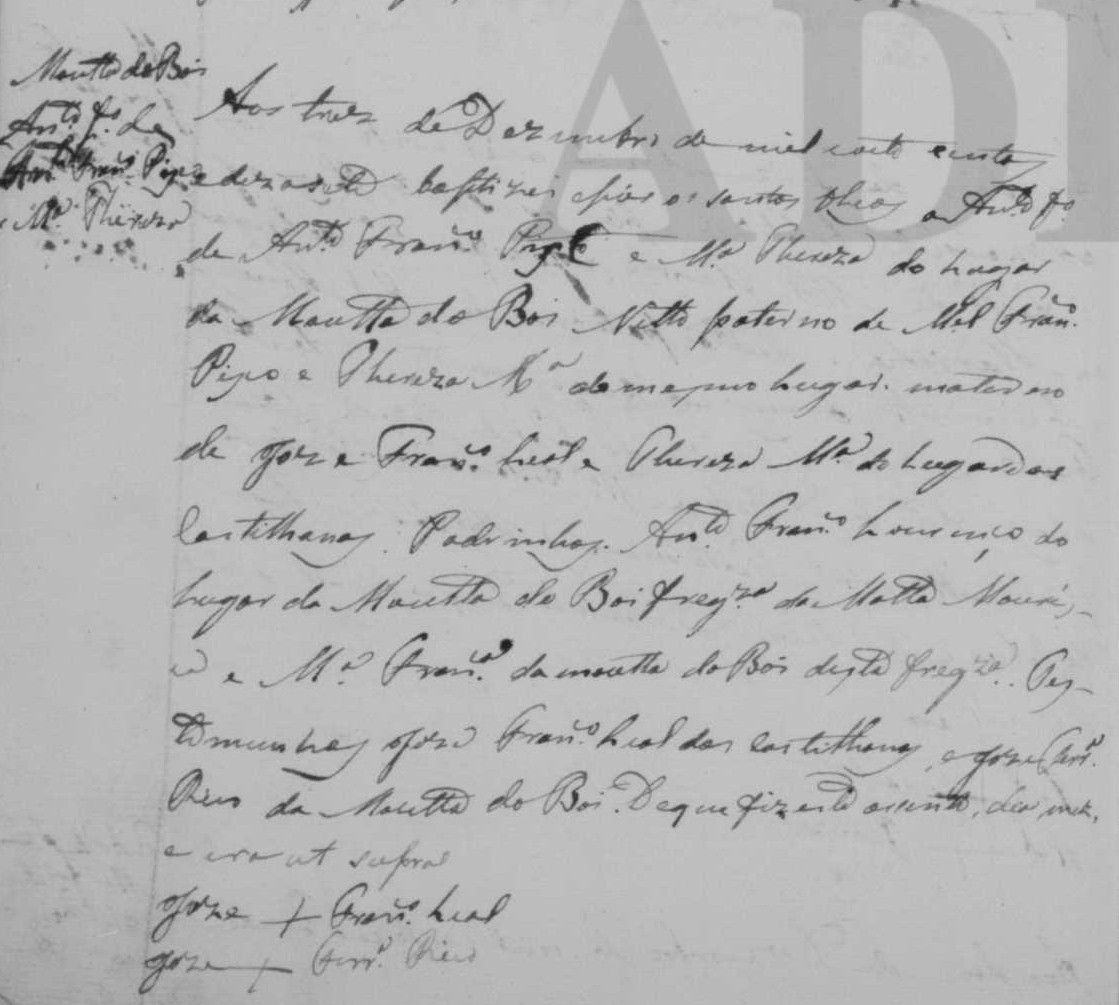 Moutta do Boi
Ant.º f.º de
Ant.º Fran.co Pipo
e M.ª Thereza
Aos trez de Dezembro de mil oito centos
e dezasete baptizei e puz os santos oleos a Ant.º f.º
de Ant.º Fran.co Pipo e M.ª Thereza do lugar
da Moutta do Boi Netto paterno de M.el Fran.co
Pipo e Thereza M.ª do mesmo lugar. materno
de Joze Fran.co Leal e Thereza M.ª do lugar das
Castilhanas. Padrinhos. Ant.º Fran.co Lourenço do
lugar da Moutta do Boi freg.za da Matta Mouris-
ca e M.ª Fran.ca da moutta do Boi desta freg.za. Tes-
temunhas Joze Fran.co Leal das Castilhanas, e Joze Ferr.ª
da Moutta do Boi. De que fiz este asento, dia, mez,
e era ut supra
Joze + Fran.co Leal
Joze + Ferr.ª
ADL